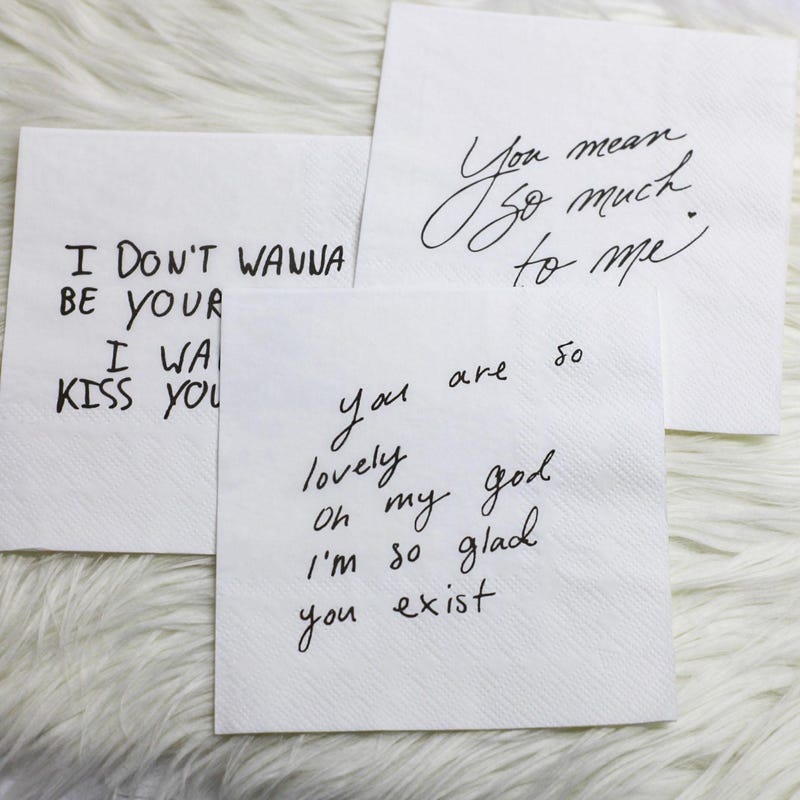 I DON'T WANNA
BE YOUR
I
KISS YOU
You mean
so much
to me
you are so
lovely
oh my god
I'm so glad
you exist